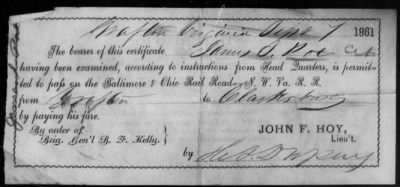 Grafton Virginia Sept 7 1861
The bearer of this certificate James S. Poe
having been examined, according to instructions from Head Quarters, is permit-
ted to pass on the Baltimore & Ohio Rail Road—N. W. Va. R. R.
from Grafton to Clarksburg
by paying his fare.
By order of
Brig. Gen'l B. F. Kelly.
JOHN F. HOY,
Lieu't.
by